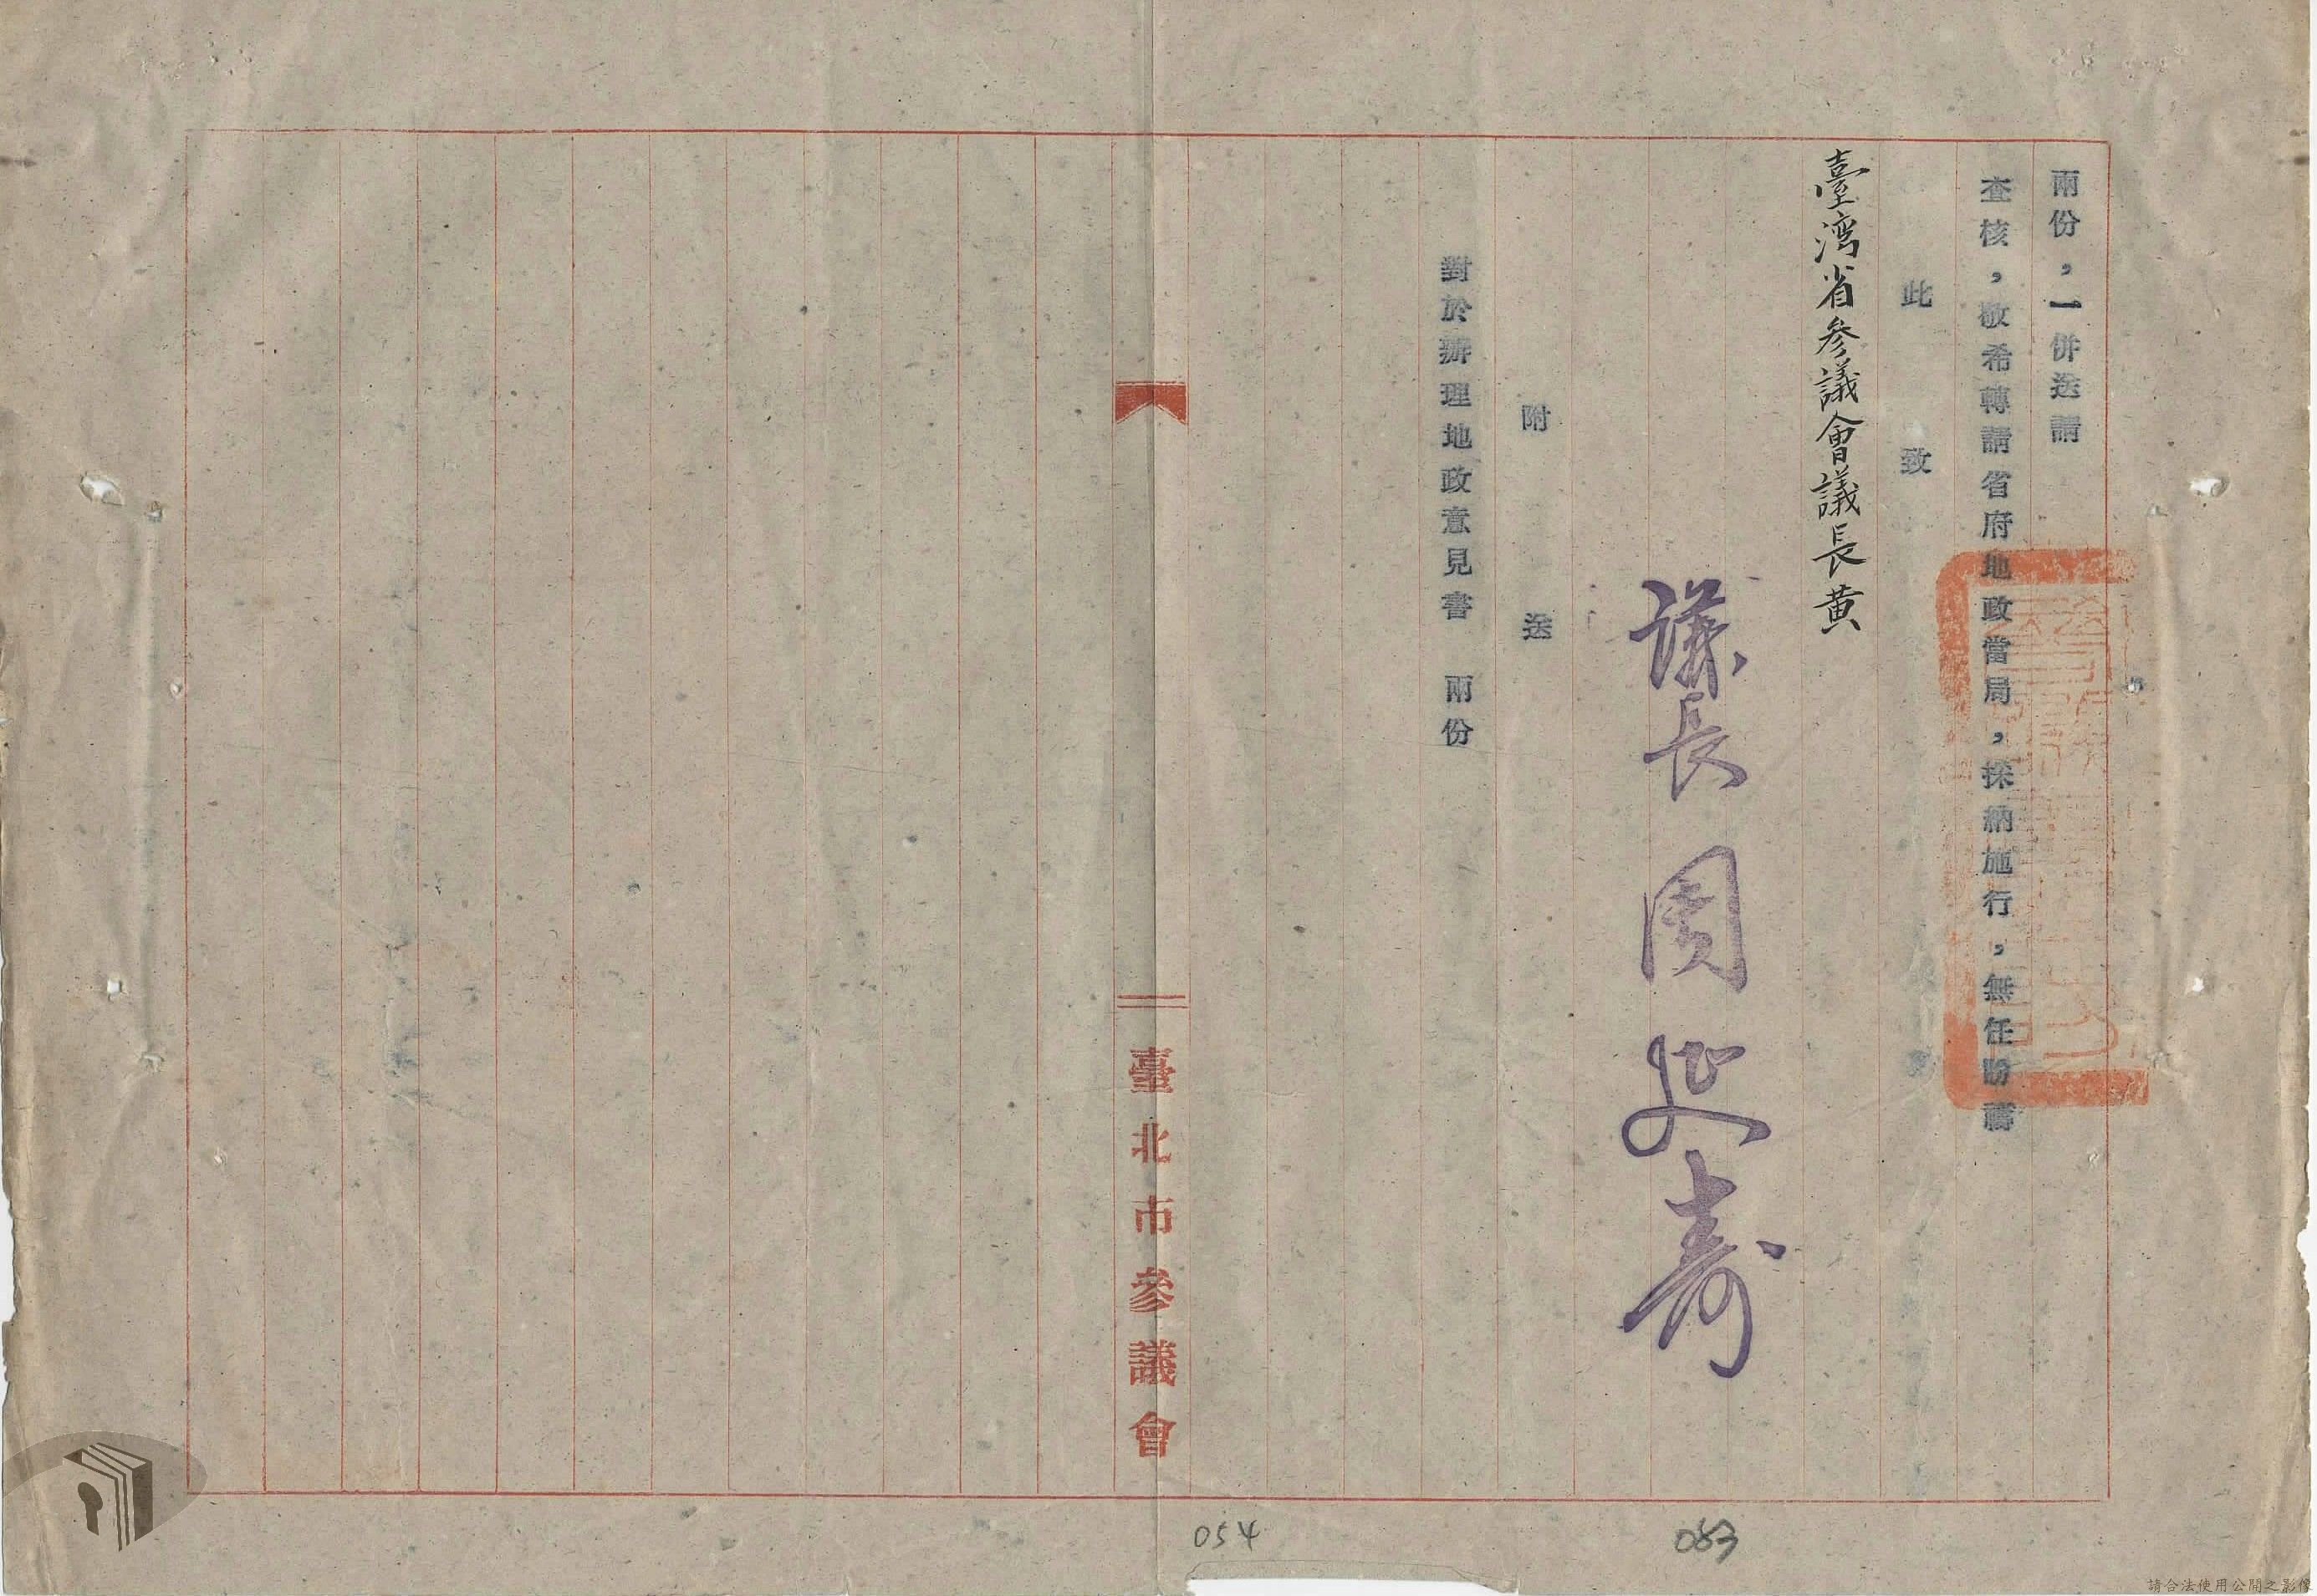 兩份，一併送請
查核，敬希轉請省府地政當局，採納施行，無任盼禱
此致
臺湾省参議會議長黃
議長周延壽
附送
對於辦理地政意見書　兩份
臺北市參議會
053
054
請合法使用公開之影像